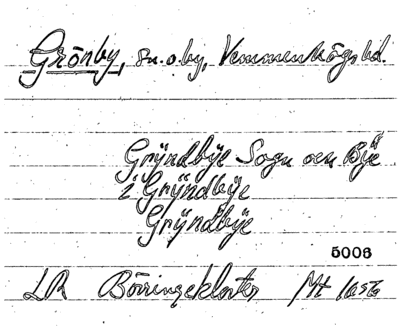 Grönby, sn. o. by, Vemmenhögs hd.
Gryndbÿe Sogn och Bÿe
i Grÿndbÿe
Grÿndbÿe
5006
LR Börringekloster Mt 1656